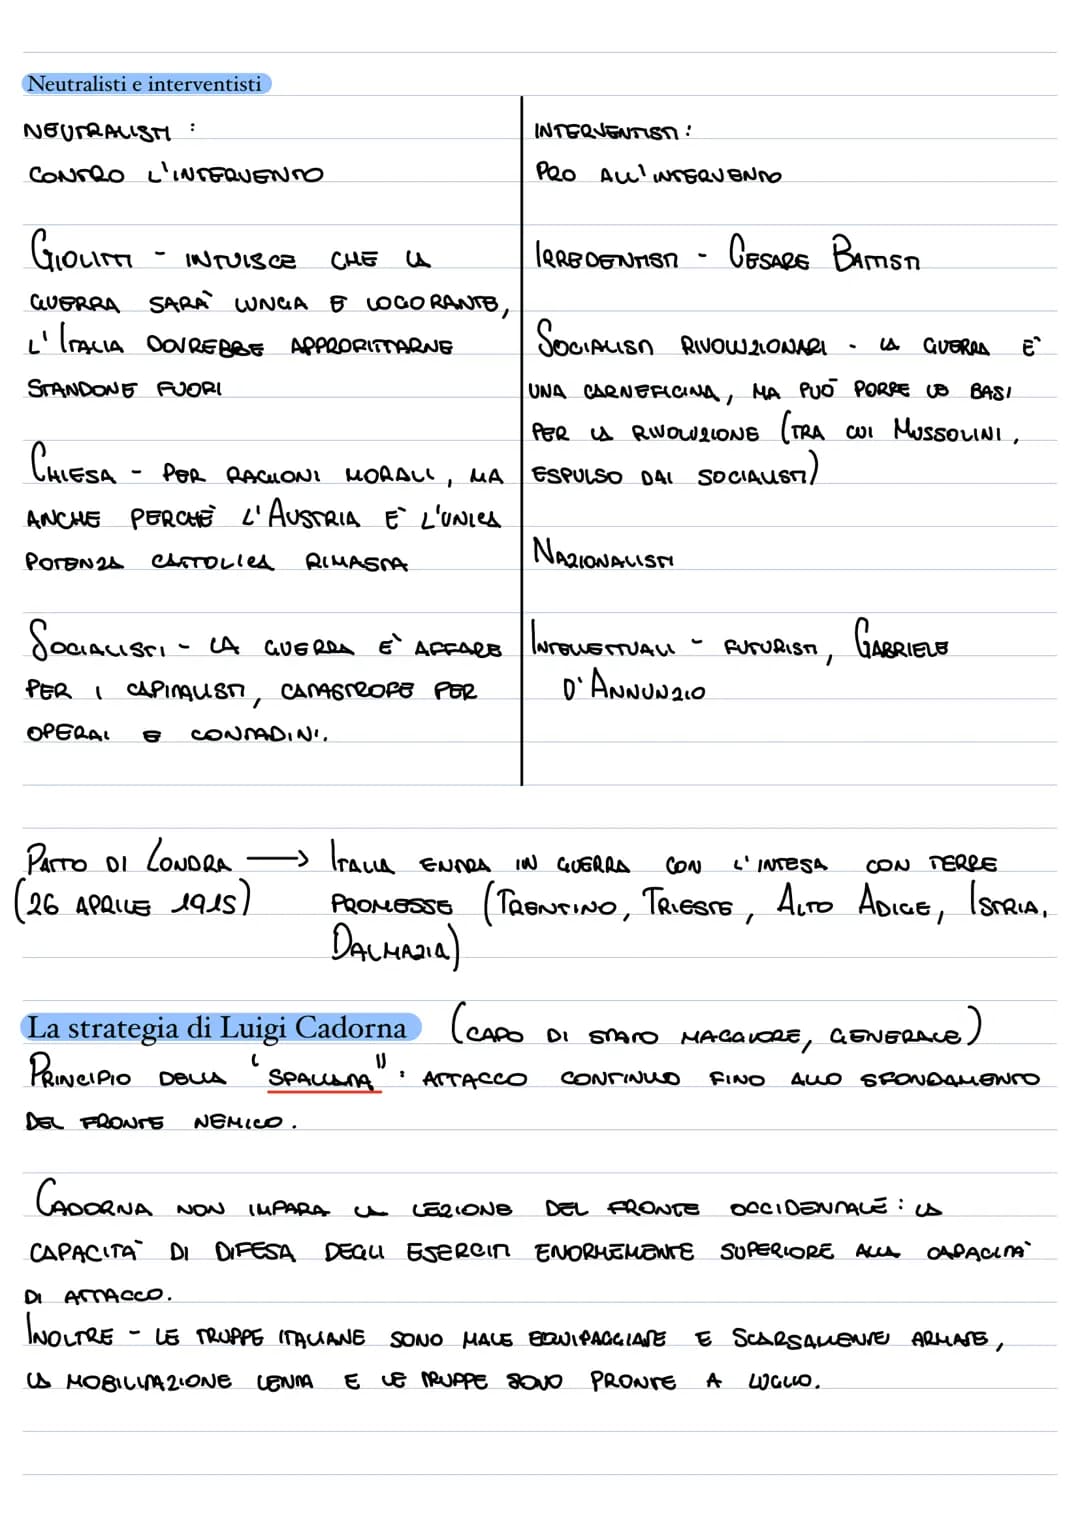 Neutralisti e interventisti
NEUTRALISTI :
CONTRO L'INTERVENTO
GIOLITTI - INTUISCE CHE LA
GUERRA SARÀ LUNGA E LOGORANTE,
L'ITALIA DOVREBBE APPROFITTARNE
STANDONE FUORI
CHIESA - PER RAGIONI MORALI, MA
ANCHE PERCHÈ L'AUSTRIA E' L'UNICA
POTENZA CATTOLICA RIMASTA
SOCIALISTI - LA GUERRA E' AFFARE
PER I CAPITALISTI, CATASTROFE PER
OPERAI E CONTADINI.
INTERVENTISTI :
PRO ALL'INTERVENTO
IRREDENTISTI - CESARE BATTISTI
SOCIALISTI RIVOLUZIONARI - LA GUERRA E'
UNA CARNEFICINA, MA PUÒ PORRE LE BASI
PER LA RIVOLUZIONE (TRA CUI MUSSOLINI,
ESPULSO DAI SOCIALISTI)
NAZIONALISTI
INTELLETTUALI - FUTURISTI, GABRIELE
D'ANNUNZIO
PATTO DI LONDRA → ITALIA ENTRA IN GUERRA CON L'INTESA CON TERRE
(26 APRILE 1915) PROMESSE (TRENTINO, TRIESTE, ALTO ADIGE, ISTRIA,
DALMAZIA)
La strategia di Luigi Cadorna (CAPO DI STATO MAGGIORE, GENERALE)
PRINCIPIO DELLA "SPALLATA" : ATTACCO CONTINUO FINO ALLO SFONDAMENTO
DEL FRONTE NEMICO.
CADORNA NON IMPARA LA LEZIONE DEL FRONTE OCCIDENTALE : LA
CAPACITA' DI DIFESA DEGLI ESERCITI ENORMEMENTE SUPERIORE ALLA CAPACITA'
DI ATTACCO.
INOLTRE - LE TRUPPE ITALIANE SONO MALE EQUIPAGGIATE E SCARSAMENTE ARMATE,
LA MOBILITAZIONE LENTA E LE TRUPPE SONO PRONTE A LUGLIO.